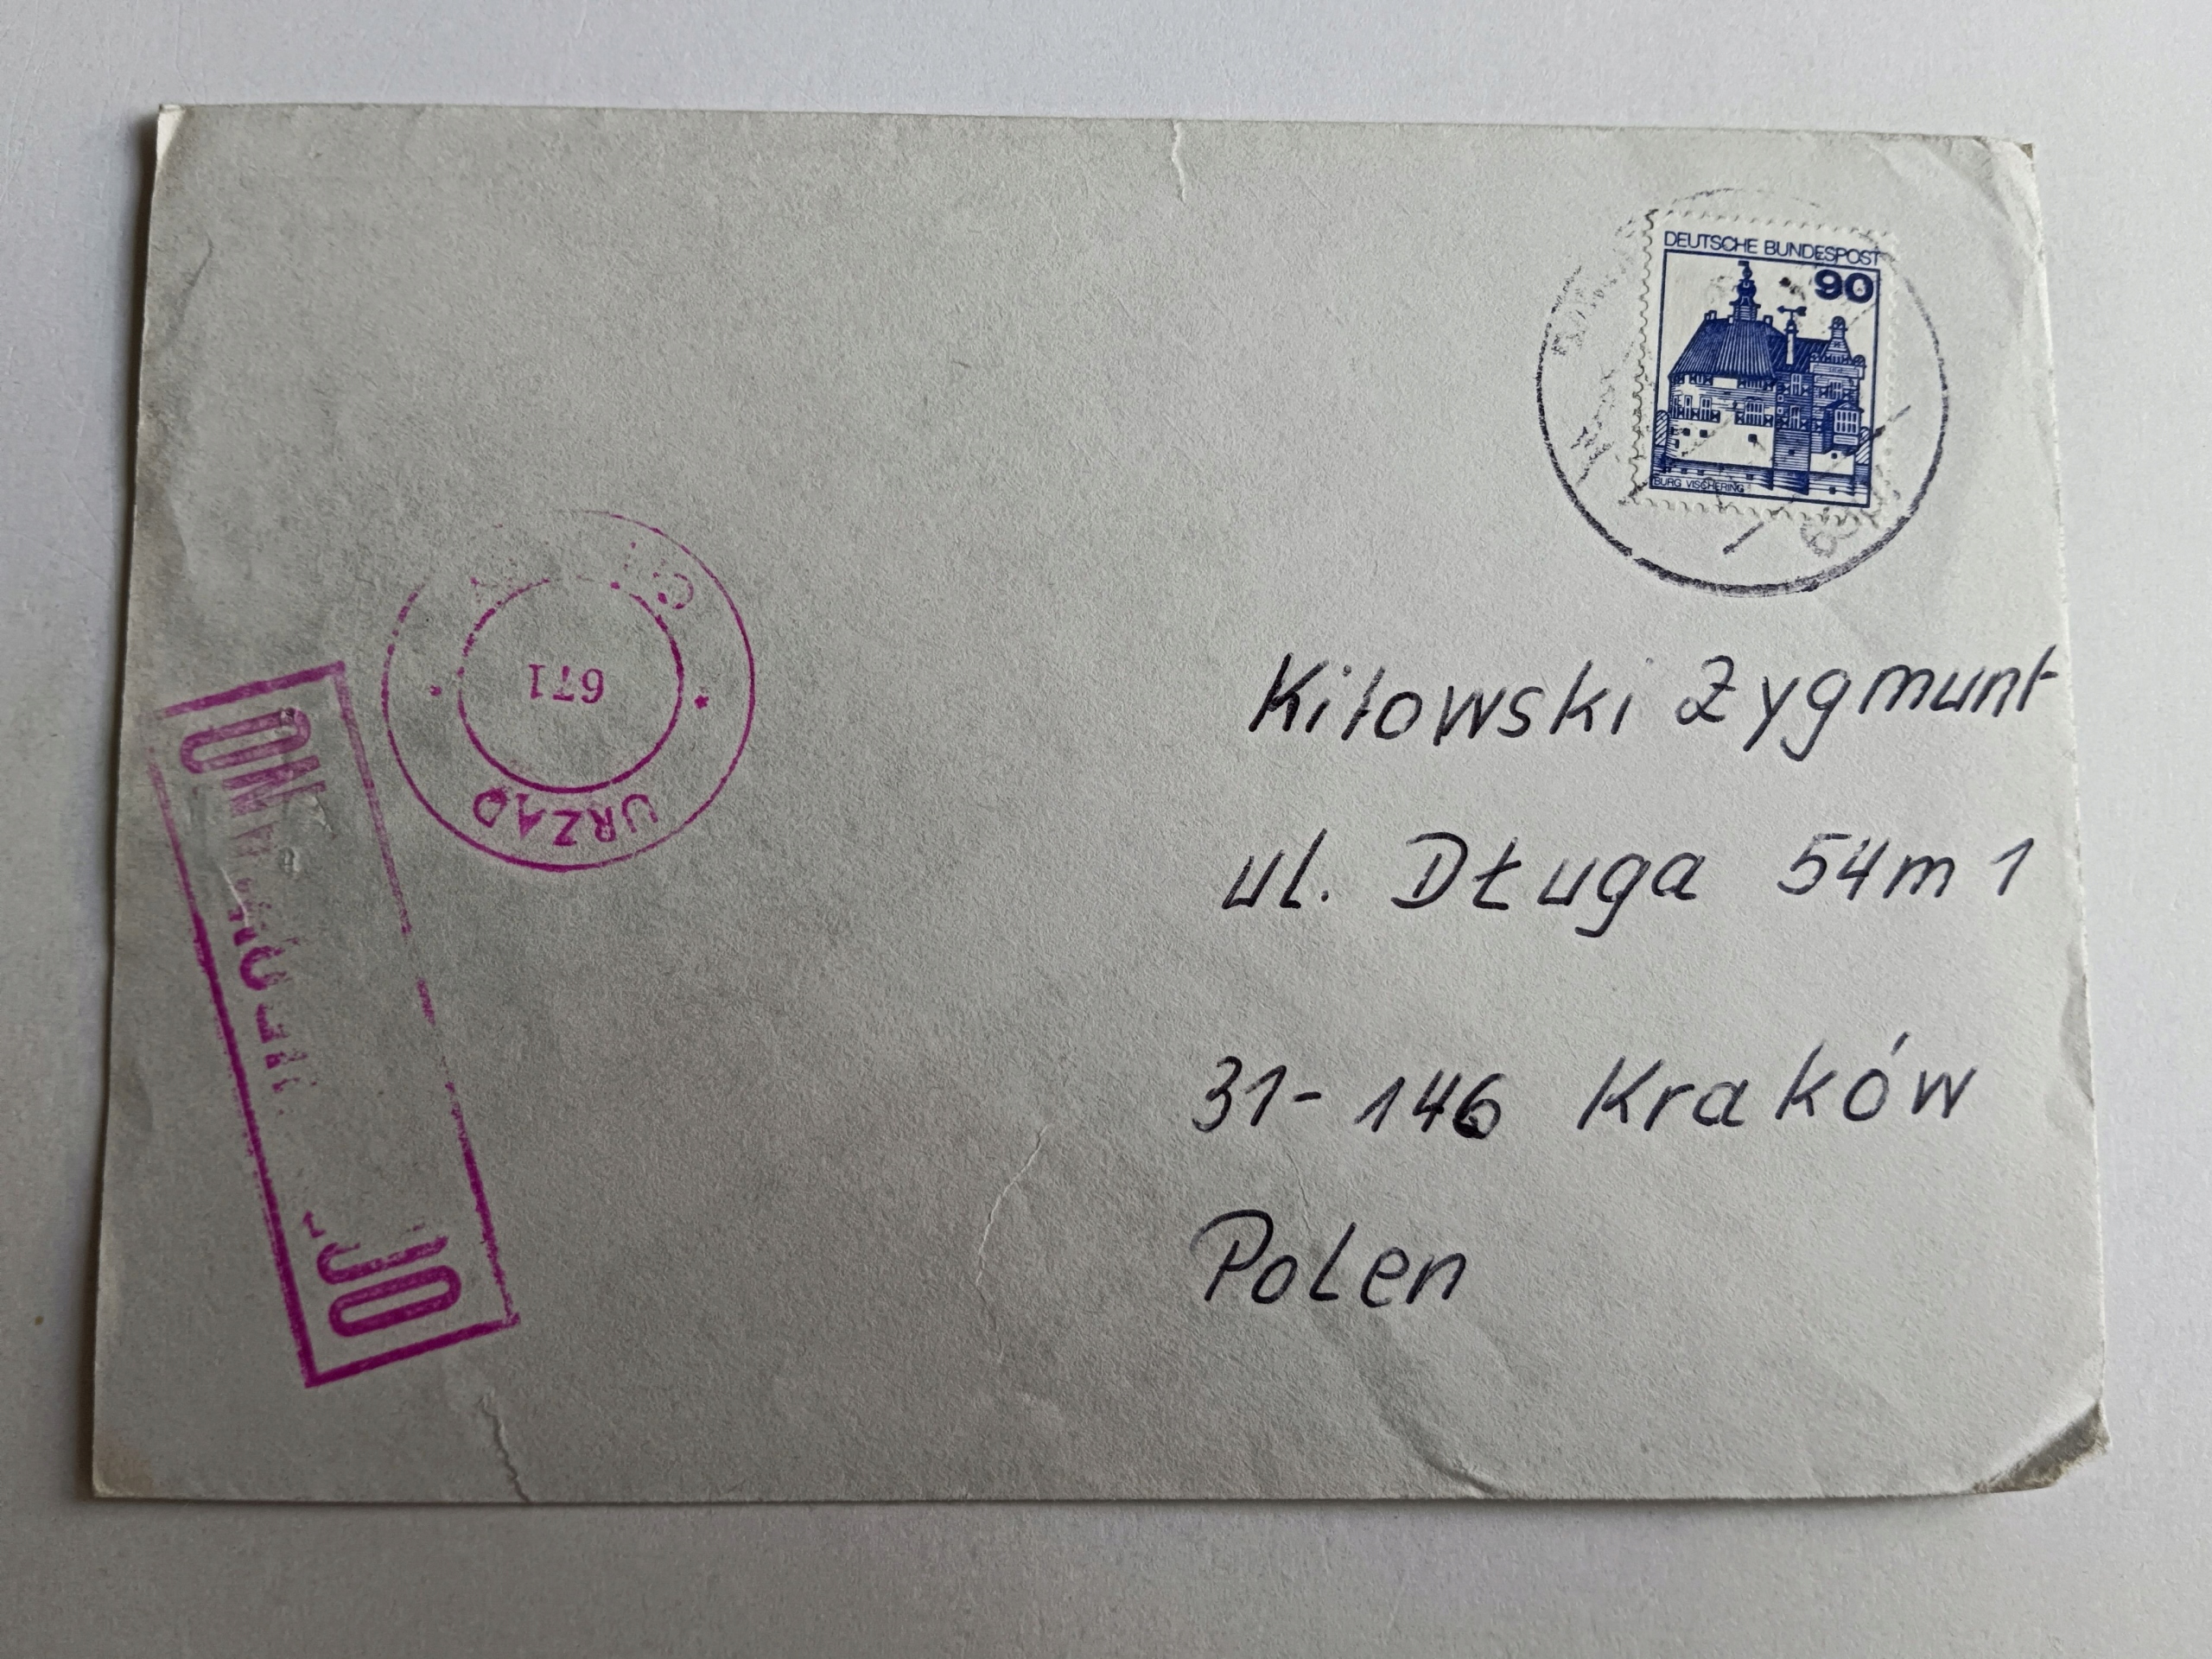 DEUTSCHE BUNDESPOST
90
BURG VISCHERING
URZĄD
671
Kiłowski Zygmunt
ul. Długa 54 m 1
31-146 Kraków
Polen